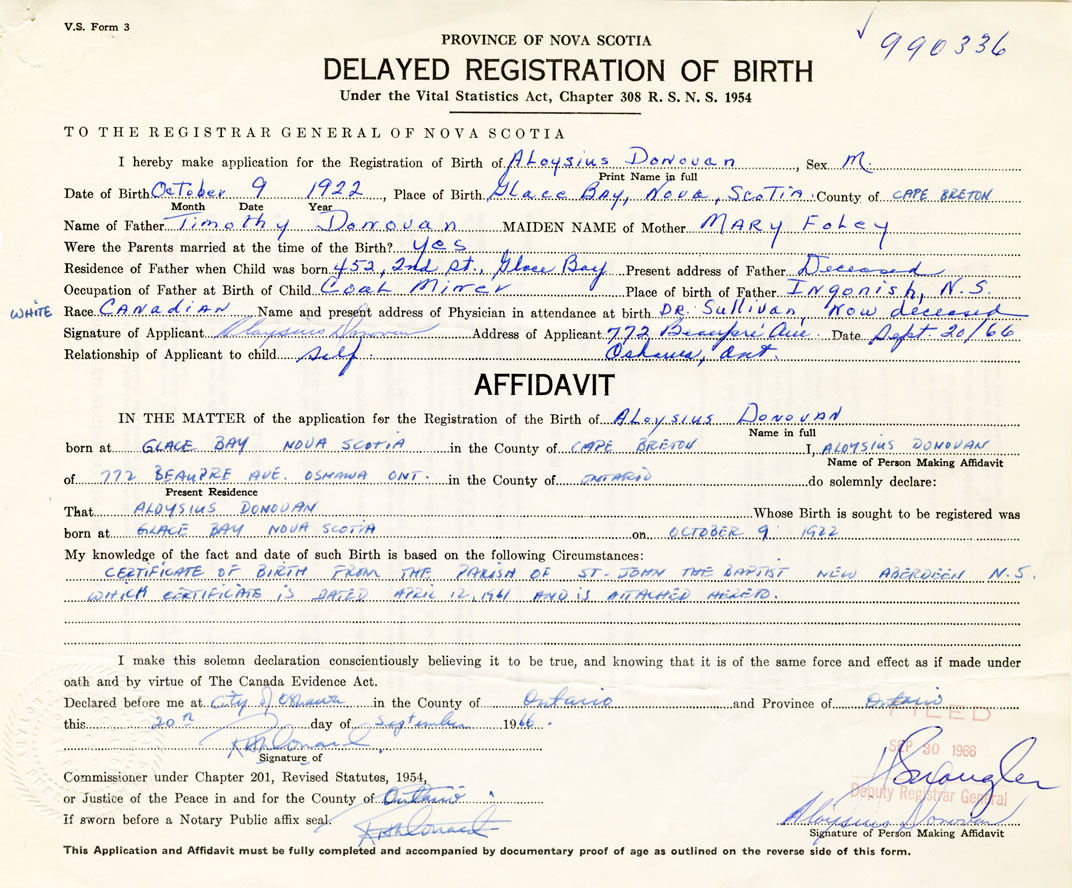 V.S. Form 3
990336
PROVINCE OF NOVA SCOTIA
DELAYED REGISTRATION OF BIRTH
Under the Vital Statistics Act, Chapter 308 R. S. N. S. 1954
TO THE REGISTRAR GENERAL OF NOVA SCOTIA
I hereby make application for the Registration of Birth of Aloysius Donovan, Sex M.
Print Name in full
Date of Birth October 9 1922, Place of Birth Glace Bay, Nova, Scotia County of CAPE BRETON
Month Date Year
Name of Father Timothy Donovan MAIDEN NAME of Mother MARY Foley
Were the Parents married at the time of the Birth? yes
Residence of Father when Child was born 453, 2nd St., Glace Bay Present address of Father Deceased
Occupation of Father at Birth of Child Coal Miner Place of birth of Father Ingonish, N.S.
WHITE Race CANADIAN Name and present address of Physician in attendance at birth DR. Sullivan, Now deceased
Signature of Applicant Aloysius Donovan Address of Applicant 772 Beaupré Ave. Date Sept 20/66
Relationship of Applicant to child self. Oshawa, Ont.
AFFIDAVIT
IN THE MATTER of the application for the Registration of the Birth of ALoysius DONOVAN
Name in full
born at GLACE BAY NOVA SCOTIA in the County of CAPE BRETON I, ALOYSIUS DONOVAN
Name of Person Making Affidavit
of 772 BEAUPRE AVE. OSHAWA ONT. in the County of ONTARIO do solemnly declare:
Present Residence
That ALOYSIUS DONOVAN Whose Birth is sought to be registered was
born at GLACE BAY NOVA SCOTIA on OCTOBER 9 1922
My knowledge of the fact and date of such Birth is based on the following Circumstances:
CERTIFICATE OF BIRTH FROM THE PARISH OF ST-JOHN THE BAPTIST NEW ABERDEEN N.S.
WHICH CERTIFICATE IS DATED APRIL 12, 1961 AND IS ATTACHED HERETO.
I make this solemn declaration conscientiously believing it to be true, and knowing that it is of the same force and effect as if made under
oath and by virtue of The Canada Evidence Act.
Declared before me at City of Oshawa in the County of Ontario and Province of Ontario
this 20th day of September 1966.
FILED
SEP 30 1966
Signature of
Commissioner under Chapter 201, Revised Statutes, 1954,
or Justice of the Peace in and for the County of Ontario
Deputy Registrar General
If sworn before a Notary Public affix seal.
Aloysius Donovan
Signature of Person Making Affidavit
This Application and Affidavit must be fully completed and accompanied by documentary proof of age as outlined on the reverse side of this form.